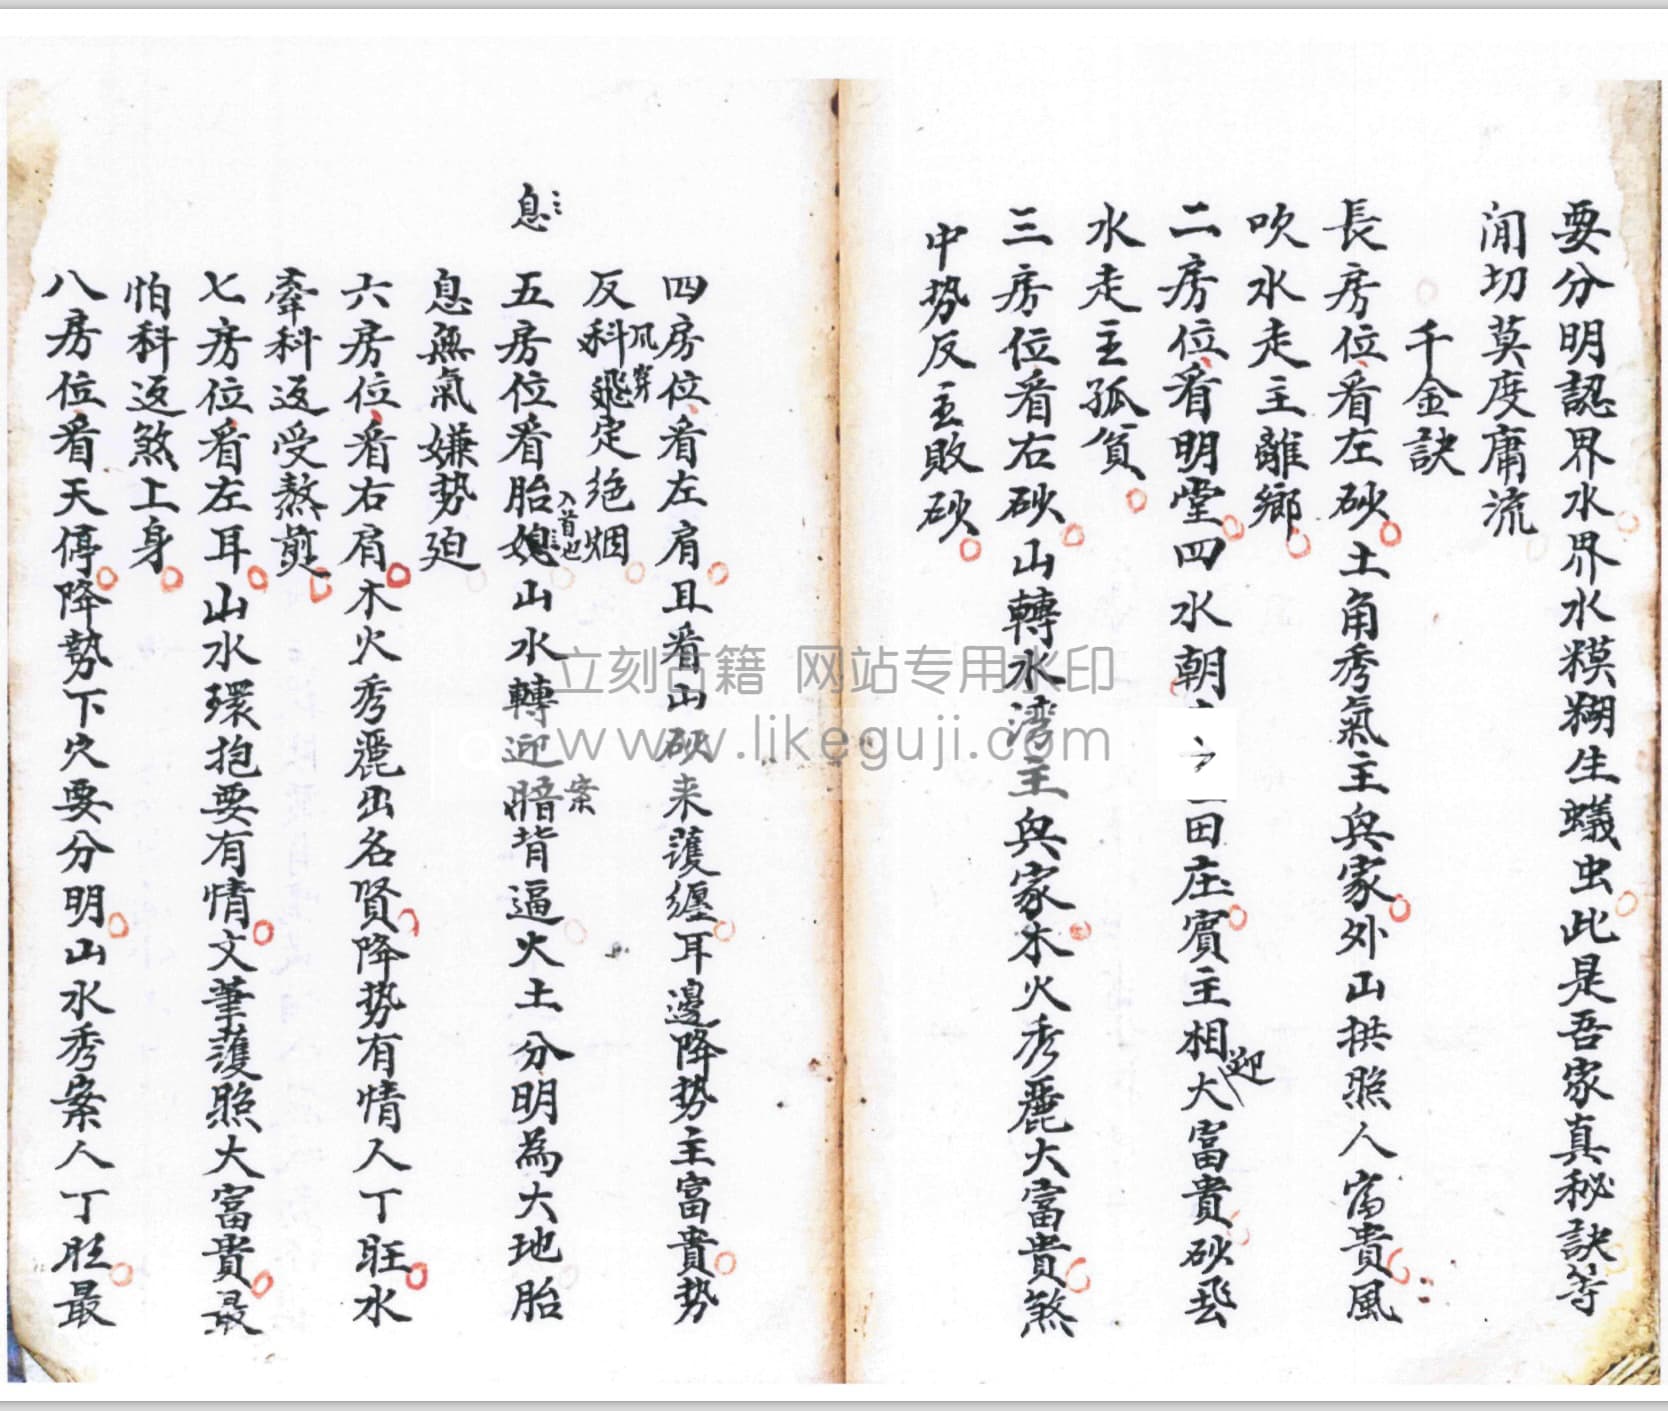 要分明認界水界水糢糊生蟻虫此是吾家真秘訣等
闲切莫度庸流
千金訣
長房位看左砂土角秀氣主與家外山拱照人富貴風
吹水走主離鄉
二房位看明堂四水朝田庄賓主相迎大富貴砂飛
水走主孤貧
三房位看右砂山轉水湾主與家木火秀麗大富貴煞
中勢反主敗砂
四房位看左肩且看山砂来護纏耳邊降势主富貴势
反科飛定绝烟
風穿
五房位看胎媳山水轉迎腊背逼火土分明為大地胎
入首也
案
息
息無氣嫌勢廹
六房位看右肩木火秀麗出名賢降势有情人丁旺水
牽科返受熬煎
七房位看左耳山水環抱要有情文筆護照大富貴最
怕科返煞上身
八房位看天停降勢下穴要分明山水秀案人丁旺最
立刻古籍 网站专用水印
www.likeguji.com